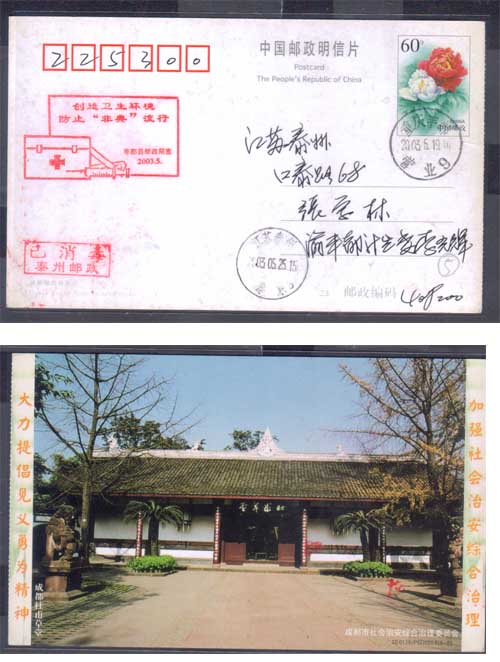 225300
中国邮政明信片
Postcard
The People's Republic of China
60分
CHINA
中国邮政
创造卫生环境
防止“非典”流行
丰都县邮政局宣
2003.5.
江苏泰州
口泰路68
张
已消毒
泰州邮政
江苏泰州
2003.05.25.15
邮政编码
408200
加强社会治安综合治理
大力提倡见义勇为精神
杜甫草堂
成都杜甫草堂
成都市社会治安综合治理委员会